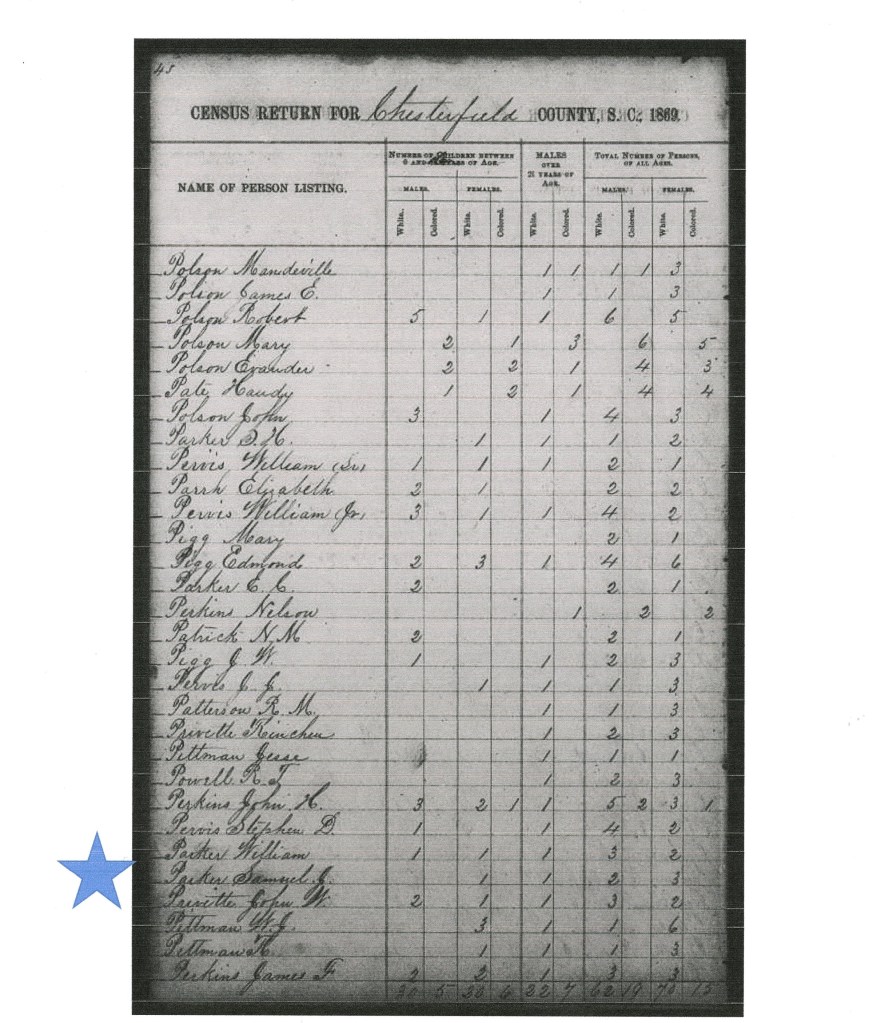 45
CENSUS RETURN FOR Chesterfield COUNTY, S. C., 1869.
NAME OF PERSON LISTING.
NUMBER OF CHILDREN BETWEEN 6 AND YEARS OF AGE.
MALES OVER 21 YEARS OF AGE.
TOTAL NUMBER OF PERSONS, OF ALL AGES.
MALES. FEMALES. MALES. FEMALES.
White. Colored. White. Colored. White. Colored. White. Colored. White. Colored.
Polson Mandeville 1 1 1 1 3
Polson James E. 1 1 3
Polson Robert 5 1 1 6 5
Polson Mary 2 1 3 6 5
Polson Evander 2 2 1 4 3
Pate Handy 1 2 1 4 4
Polson John 3 1 4 3
Parker S. H. 1 1 1 2
Pervis William (Sr) 1 1 1 2 1
Parrh Elizabeth 2 1 2 2
Pervis William (Jr) 3 1 1 4 2
Pigg Mary 2 1
Pigg Edmond 2 3 1 4 6
Parker E. C. 2 2 1
Perkins Nelson 1 2 2
Patrick N. M. 2 2 1
Pigg J. W. 1 1 2 3
Pervis J. J. 1 1 1 3
Patterson R. M. 1 1 3
Privette Kinchen 1 2 3
Pittman Jesse 1 1 1
Powell R. T. 1 2 3
Perkins John H. 3 2 1 1 5 2 3 1
Pervis Stephen D. 1 1 4 2
Parker William 1 1 1 3 2
Parker Samuel J. 1 1 2 3
Privette John W. 2 1 1 3 2
Pittman W. J. 3 1 1 6
Pittman H. 1 1 1 3
Perkins James F 2 2 1 3 3
5 6 22 7 62 19 15